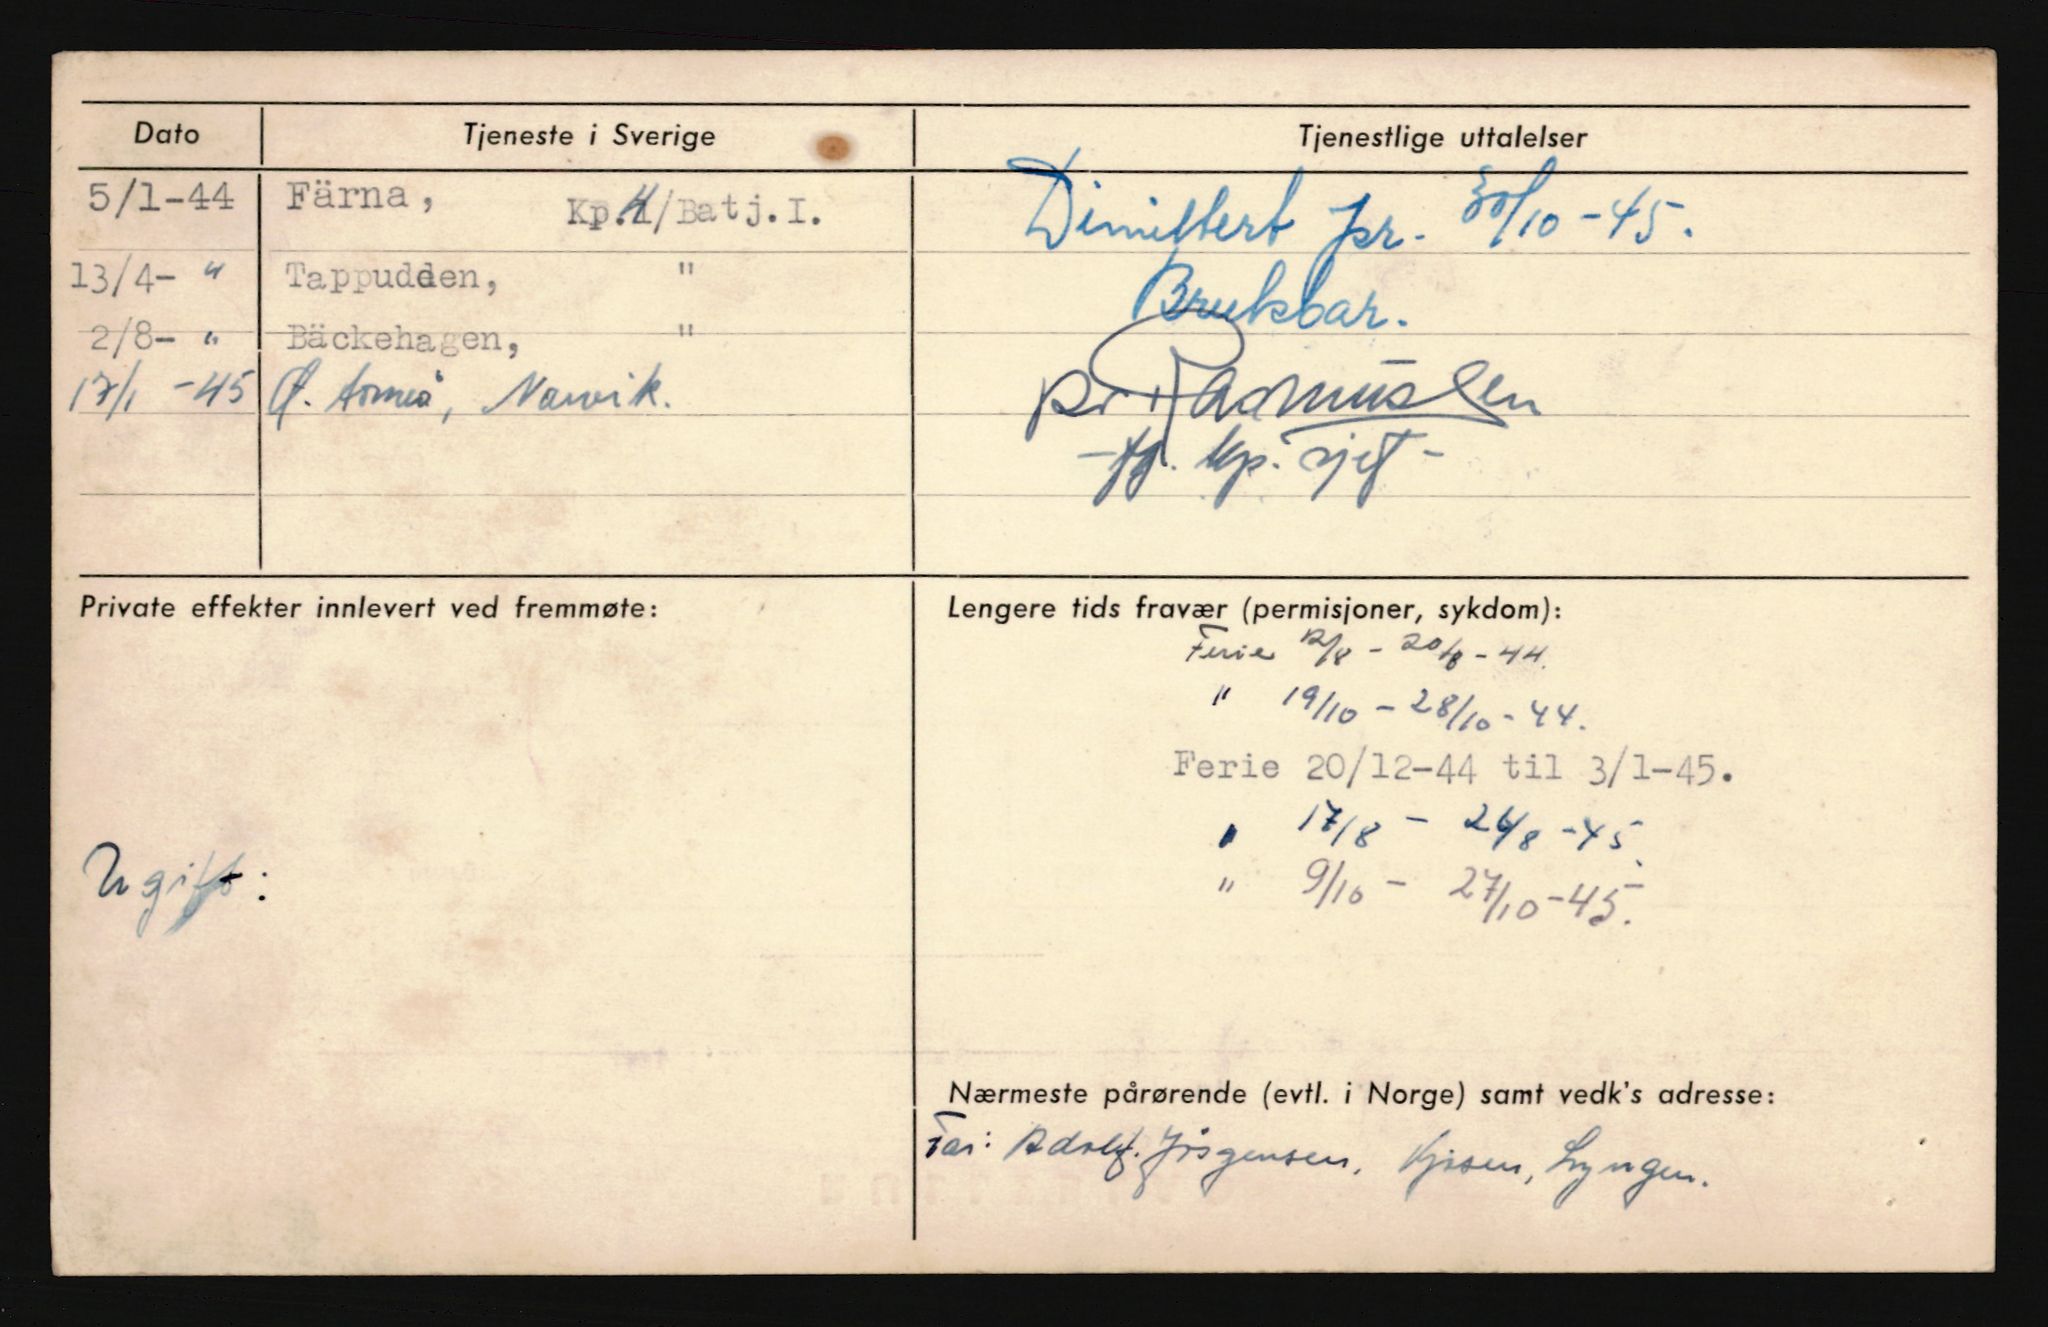 Dato
Tjeneste i Sverige
Tjenestlige uttalelser
5/1-44 Färna, Kp.4/Batj.I.
13/4- " Tappudden, "
2/8- " Bäckehagen, "
17/1 -45 Narvik.
Dimittert pr. 30/10-45.
Brukbar.
Rasmussen
-fg. kp. sjef-
Private effekter innlevert ved fremmøte:
Ugift:
Lengere tids fravær (permisjoner, sykdom):
Ferie 12/8 - 20/8 - 44.
" 19/10 - 28/10 - 44.
Ferie 20/12-44 til 3/1-45.
" 17/8 - 26/8 -45.
" 9/10 - 27/10-45.
Nærmeste pårørende (evtl. i Norge) samt vedk's adresse:
Far: Adolf. Jørgensen, Kjosen, Lyngen.